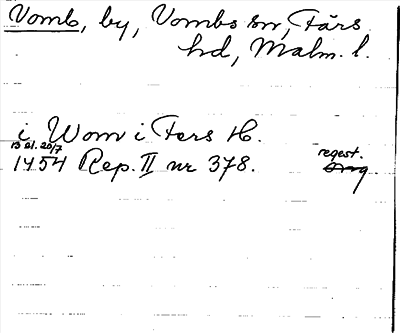 Vomb, by, Vombs sn, Färs
hd, Malm. l.
i Wom i Fers H.
1454 Rep. II nr 378.
regest.